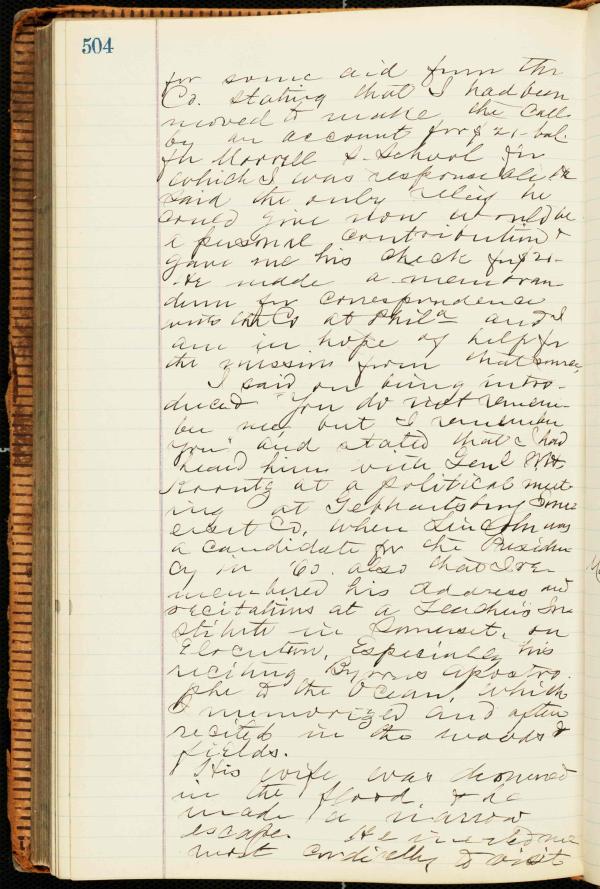 504
for some aid from the
Co. stating that I had been
moved to make the call
by an account for $21- bal.
fr Morrell S. School for
which I was responsible He
said the only relief he
could give now would be
a personal contribution &
gave me his check for $21-
He made a memoran
dum for correspondence
with the Co at Phila and I
am in hope of help for
the mission from that source,
I said on being intro-
duced "You do not remem-
ber me but I remember
you" and stated that I had
heard him with Genl Wm
Koontz at a political meet
ing at Gebhartsburg Som
erset Co, when Lincoln was
a candidate for the Presiden
cy in '60. also that I re-
membered his address and
recitations at a Teacher's In
stitute in Somerset, on
Elocution, Especially his
reciting Byrons apostro
phe to the Ocean, which
I memorized and often
recited in the woods &
fields.
His wife was drowned
in the flood, & he
made a narrow
escape. He invited me
most cordially to visit